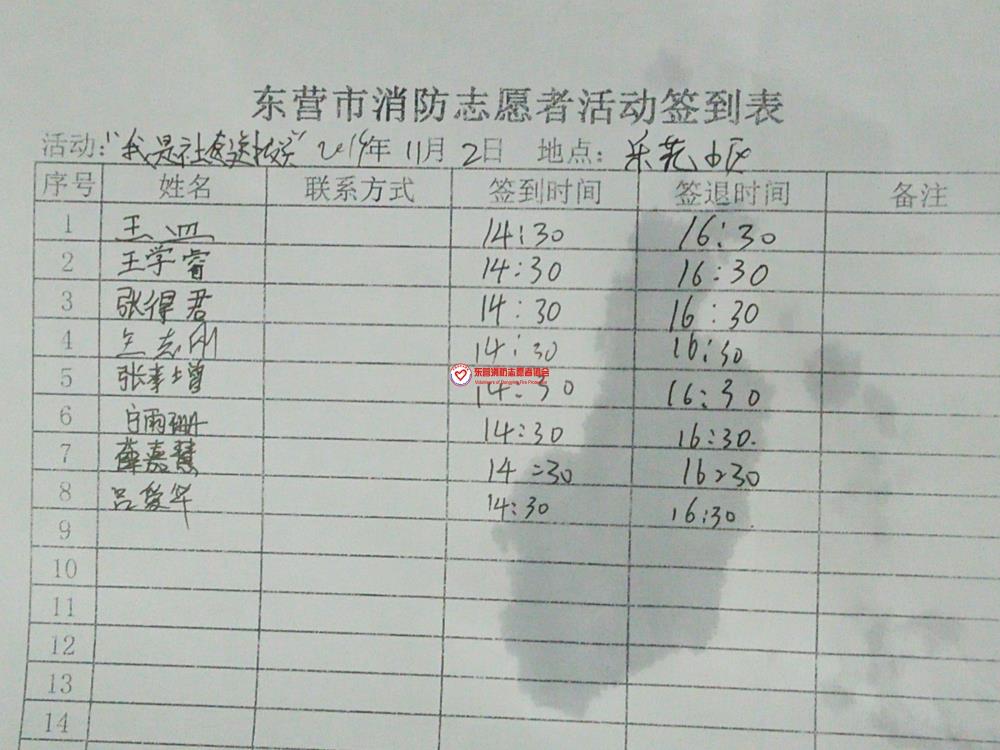 东营市消防志愿者活动签到表
活动:"我是社 2019年 11月 2日 地点: 小区
序号 姓名 联系方式 签到时间 签退时间 备注
1 王 14:30 16:30
2 王学睿 14:30 16:30
3 张得君 14:30 16:30
4 志刚 14:30 16:30
东营消防志愿者协会
Volunteers of Dongying Fire Protection
5 张 增 14:30 16:30
6 白雨珊 14:30 16:30.
7 薛嘉慧 14:30 16:30
8 吕爱华 14:30 16:30
9
10
11
12
13
14